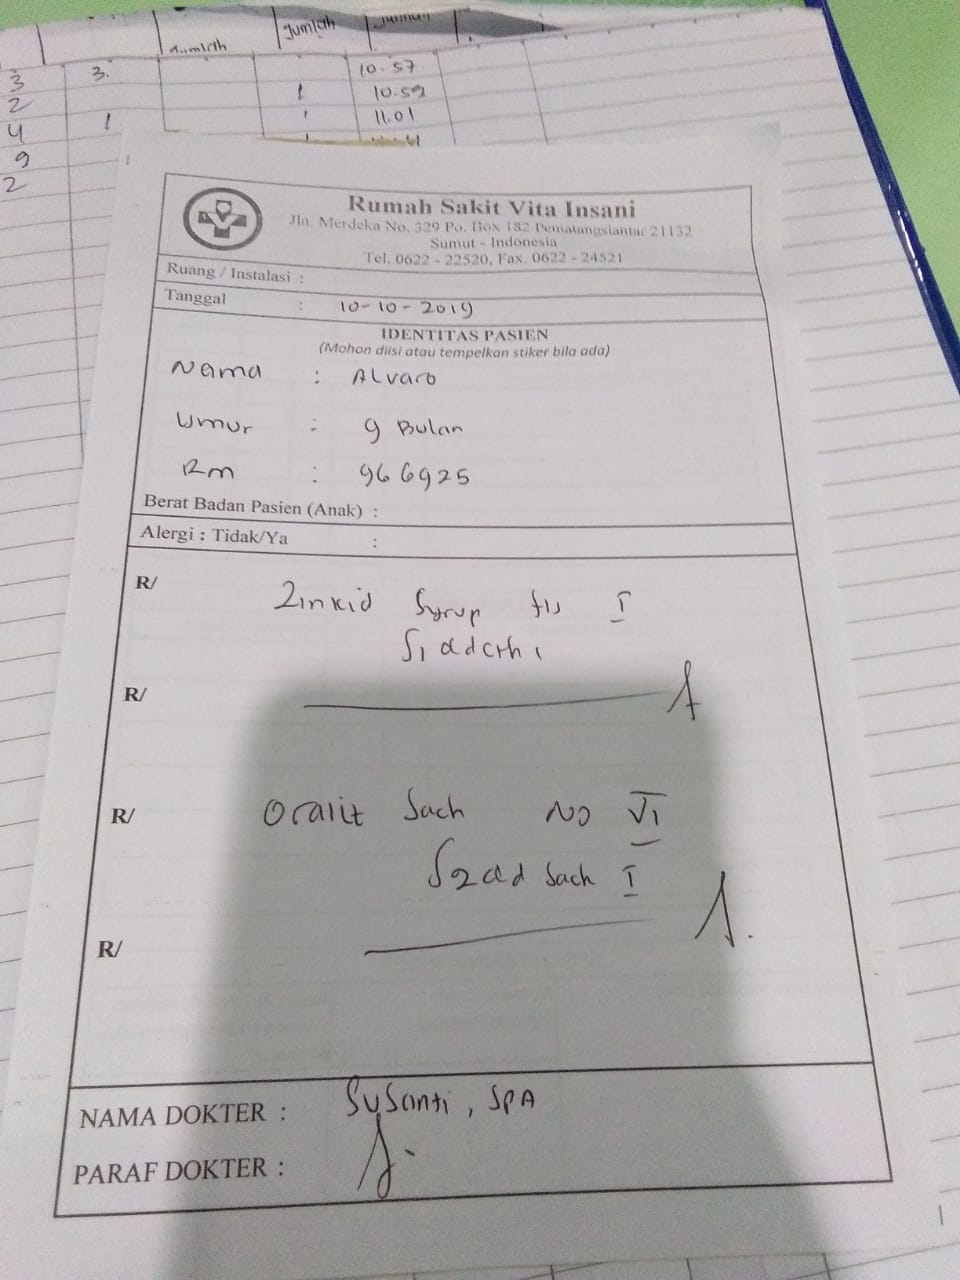 Jumlah Jumlah Jumlah
3 3. 10.57
2 1 10.59
4 1 1 11.01
9
2
Rumah Sakit Vita Insani
Jln. Merdeka No. 329 Po. Box 182 Pematangsiantar 21132
Sumut - Indonesia
Tel. 0622 - 22520, Fax. 0622 - 24521
Ruang / Instalasi :
Tanggal : 10-10-2019
IDENTITAS PASIEN
(Mohon diisi atau tempelkan stiker bila ada)
Nama : Alvaro
Umur : 9 Bulan
Rm : 966925
Berat Badan Pasien (Anak) :
Alergi : Tidak/Ya :
R/ Zinkid Syrup fls I
S1 dd cth 1
R/
R/ Oralit Sach No VI
S2dd Sach I
R/
NAMA DOKTER : Susanti, SPA
PARAF DOKTER :